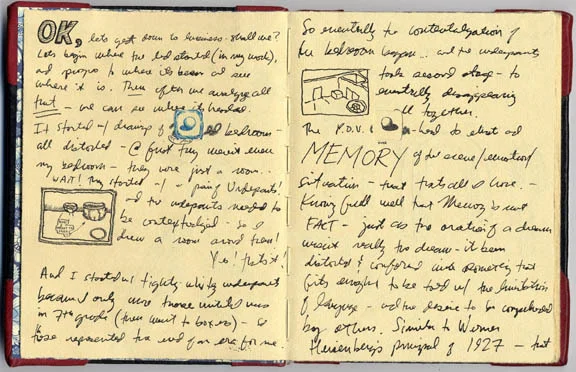 OK, lets get down to business - shall we?
Lets begin where the bed started (in my work),
and progress to where its been and see
where it is. Then after we analyze all
that - we can see where it headed.
It started w/ drawings of bedrooms -
all distorted - @ first they weren't even
my bedroom they were just a room..
WAIT! They started w/ a pair of Underpants!
and the underpants needed to
be contextualized - so I
drew a room around them!
Yes! that's it!
And I started w/ tighty-whity underpants
because I only wore those until I was
in 7th grade (then went to boxers) - &
those represented the end of an era for me.
So eventually the contextualization of
the bedroom began... and the underpants
took second stage - to
eventually disappearing
all together.
The P.O.V. & bed - had to exist as
MEMORY of the scene/emotional
situation - that that's all I have. -
Knowing full well that Memory is not
FACT - just as the oration of a dream
wasn't really the dream - its been
distorted & conformed into something that
fits enough to be told w/ the limitations
of language - and the desire to be comprehended
by others. Similar to Werner
Heisenberg's principal of 1927 - that